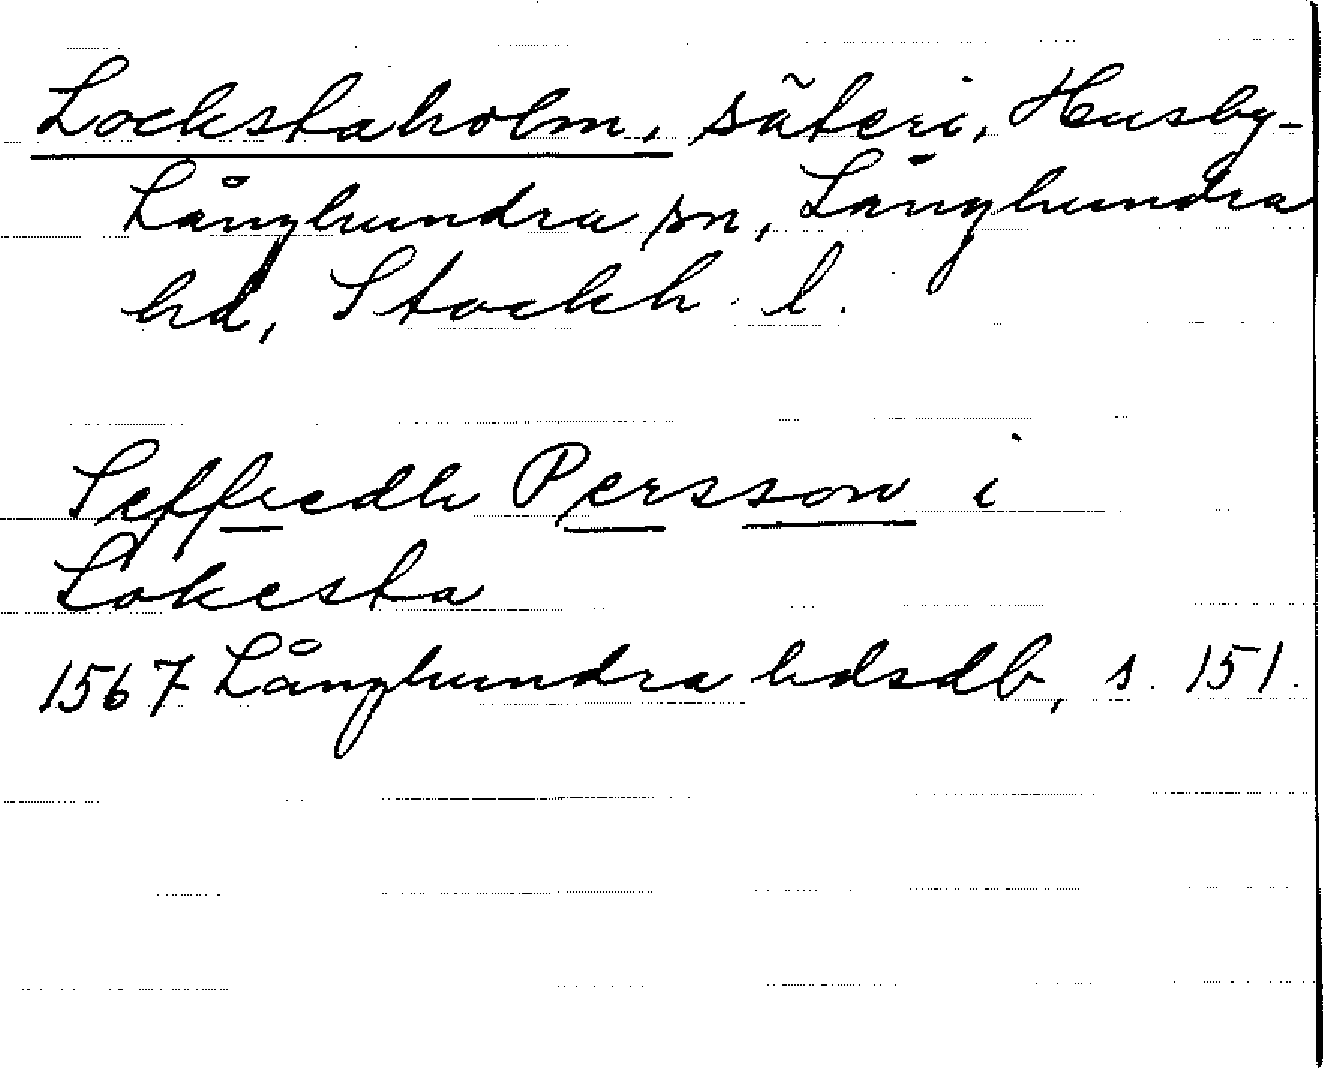 Lockstaholm, säteri, Husby-
Långhundra sn, Långhundra
hd, Stockh. l.
Seffredh Persson i
Lokesta
1567 Långhundra hdsdb, s. 151.